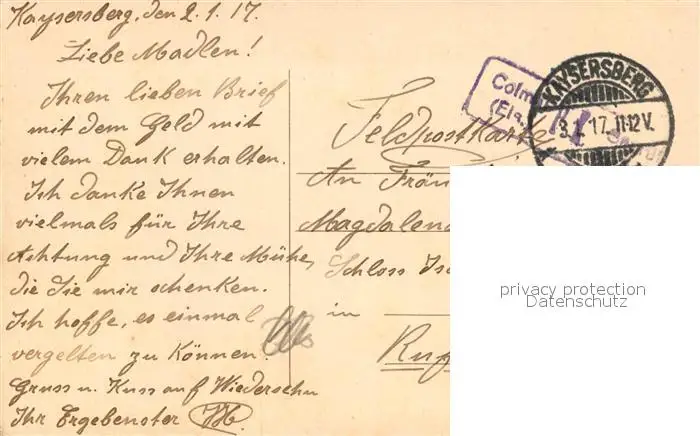 Kaysersberg, den 2.1.17.
Liebe Madlen!
Ihren lieben Brief
mit dem Geld mit
vielem Dank erhalten.
Ich danke Ihnen
vielmals für Ihre
Achtung und Ihre Mühe,
die Sie mir schenken.
Ich hoffe, es einmal
vergelten zu können!
Gruss u. Kuss auf Wiedersehn
Ihr Ergebenster
Colm
(Els.
KAYSERSBERG
3.1.17.11-12V.
Feldpostkarte
An Fräu
Magdalena
Schloss
in
privacy protection
Datenschutz